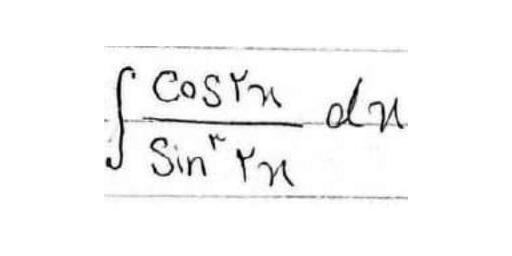 ∫ Cos۲x / Sin^۳ ۲x dx